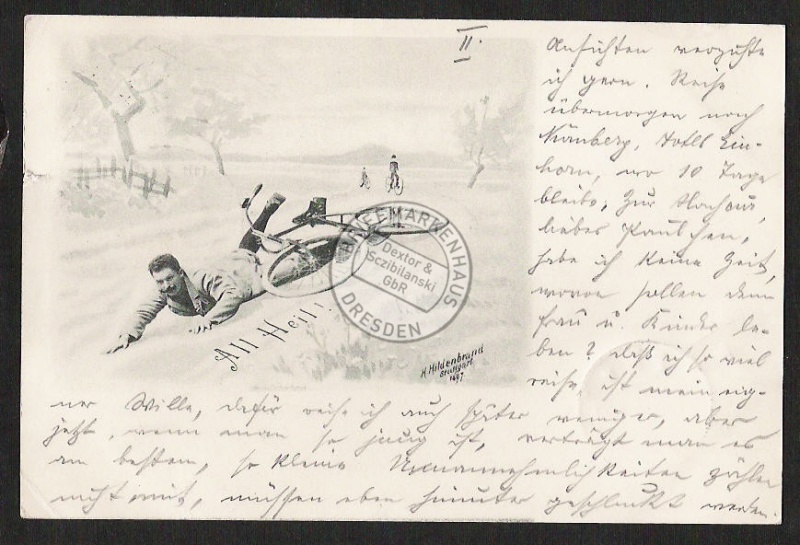 II.
Ansichten
ich gern. Reise
übermorgen nach
Nürnberg, Hotel Ein-
horn, wo 10 Tage
bleibe, zur
liebes
habe ich keine Zeit,
wovon sollen denn
Frau u. Kinder le-
ben? Daß ich so viel
reise, ist mein eig-
ner Wille, dafür reise ich auch später weniger, aber
jetzt, wenn man so jung ist, verträgt man es
am besten, so kleine Unannehmlichkeiten zählen
nicht mit, müssen eben hinunter geschluckt werden.
All Heil!
H. Hildenbrand
Stuttgart
1897
BRIEFMARKENHAUS
Dextor &
Sczibilanski
GbR
DRESDEN